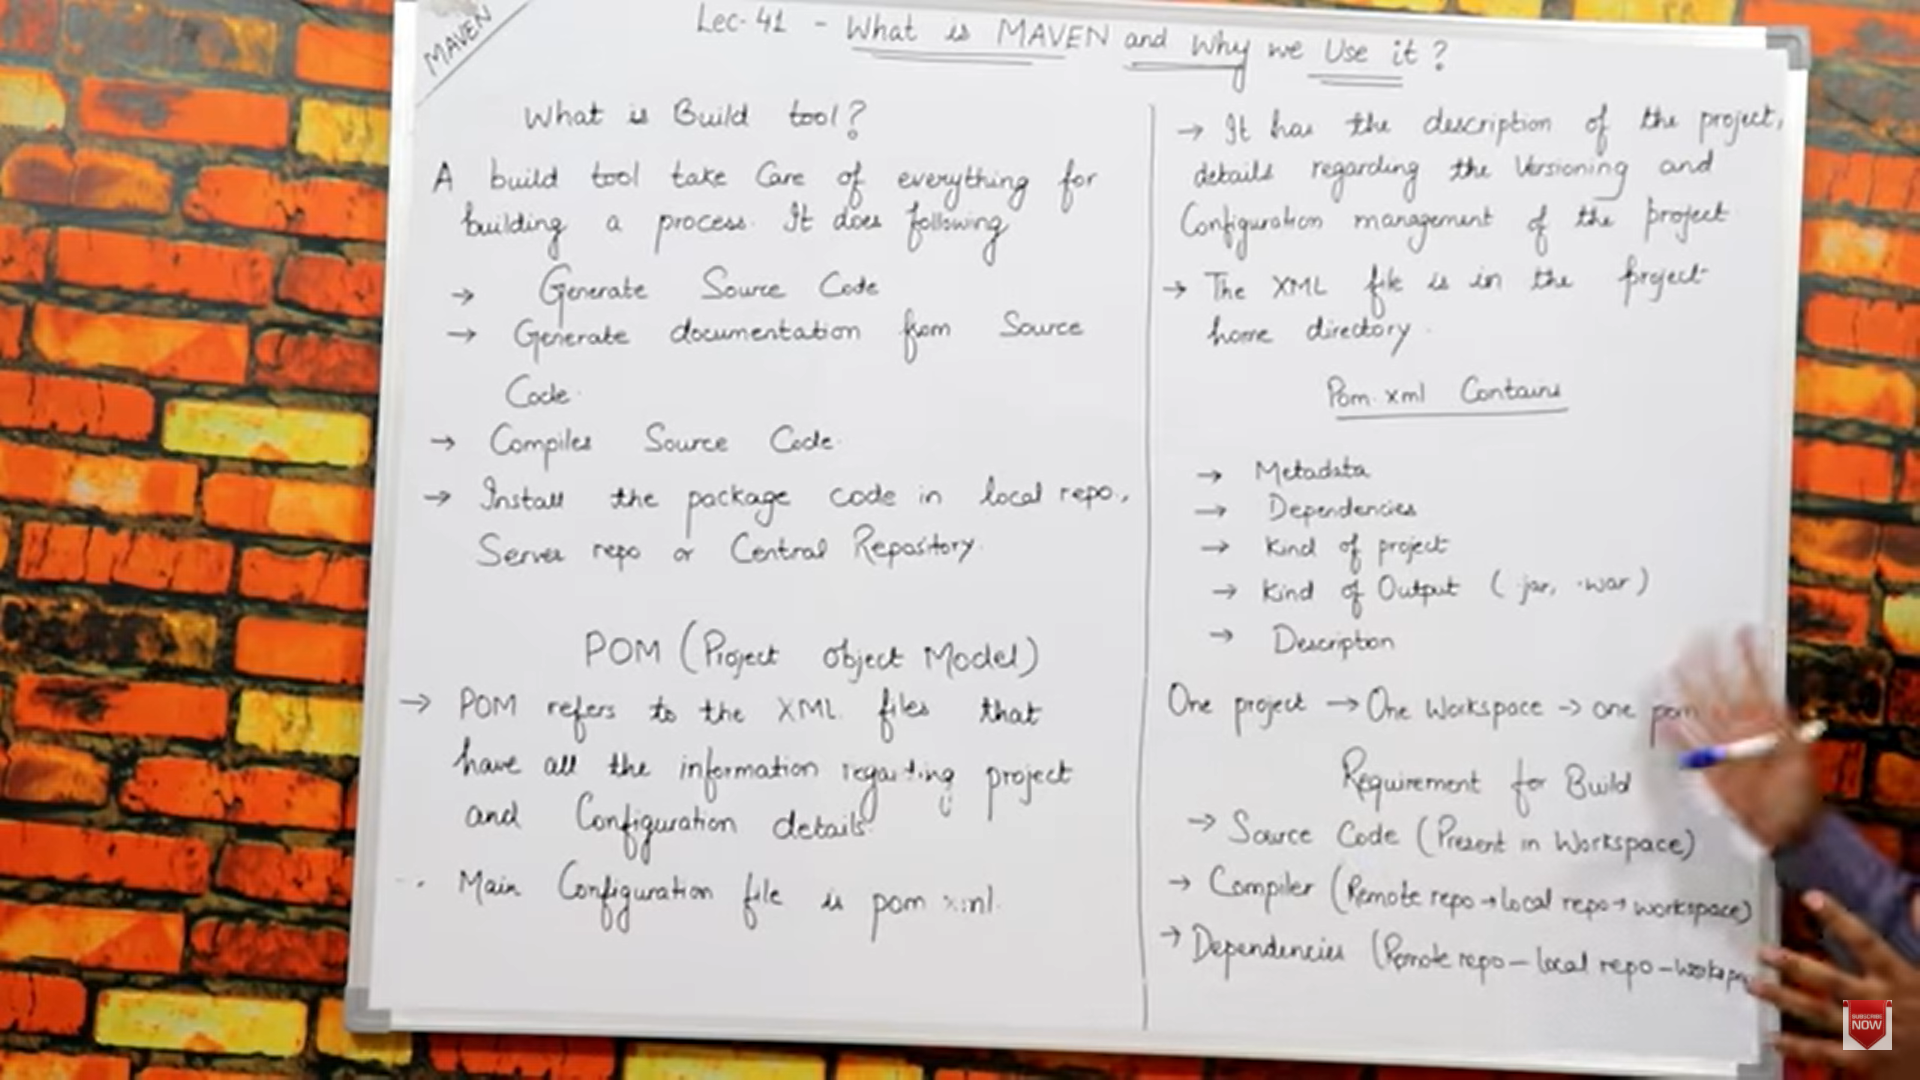 MAVEN
Lec-41 - What is MAVEN and Why we Use it?
What is Build tool?
A build tool take Care of everything for
building a process. It does following
→ Generate Source Code
→ Generate documentation from Source
Code.
→ Compiles Source Code.
→ Install the package code in local repo.,
Server repo or Central Repository.
POM (Project Object Model)
→ POM refers to the XML files that
have all the information regarding project
and Configuration details.
Main Configuration file is pom.xml.
→ It has the description of the project,
details regarding the Versioning and
Configuration management of the project
→ The XML file is in the project
home directory.
Pom.xml Contains
→ Metadata
→ Dependencies
→ Kind of project
→ Kind of Output (.jar, .war)
→ Description
One project → One Workspace → one pom
Requirement for Build
→ Source Code (Present in Workspace)
→ Compiler (Remote repo → local repo → workspace)
→ Dependencies (Remote repo – local repo –
SUBSCRIBE
NOW